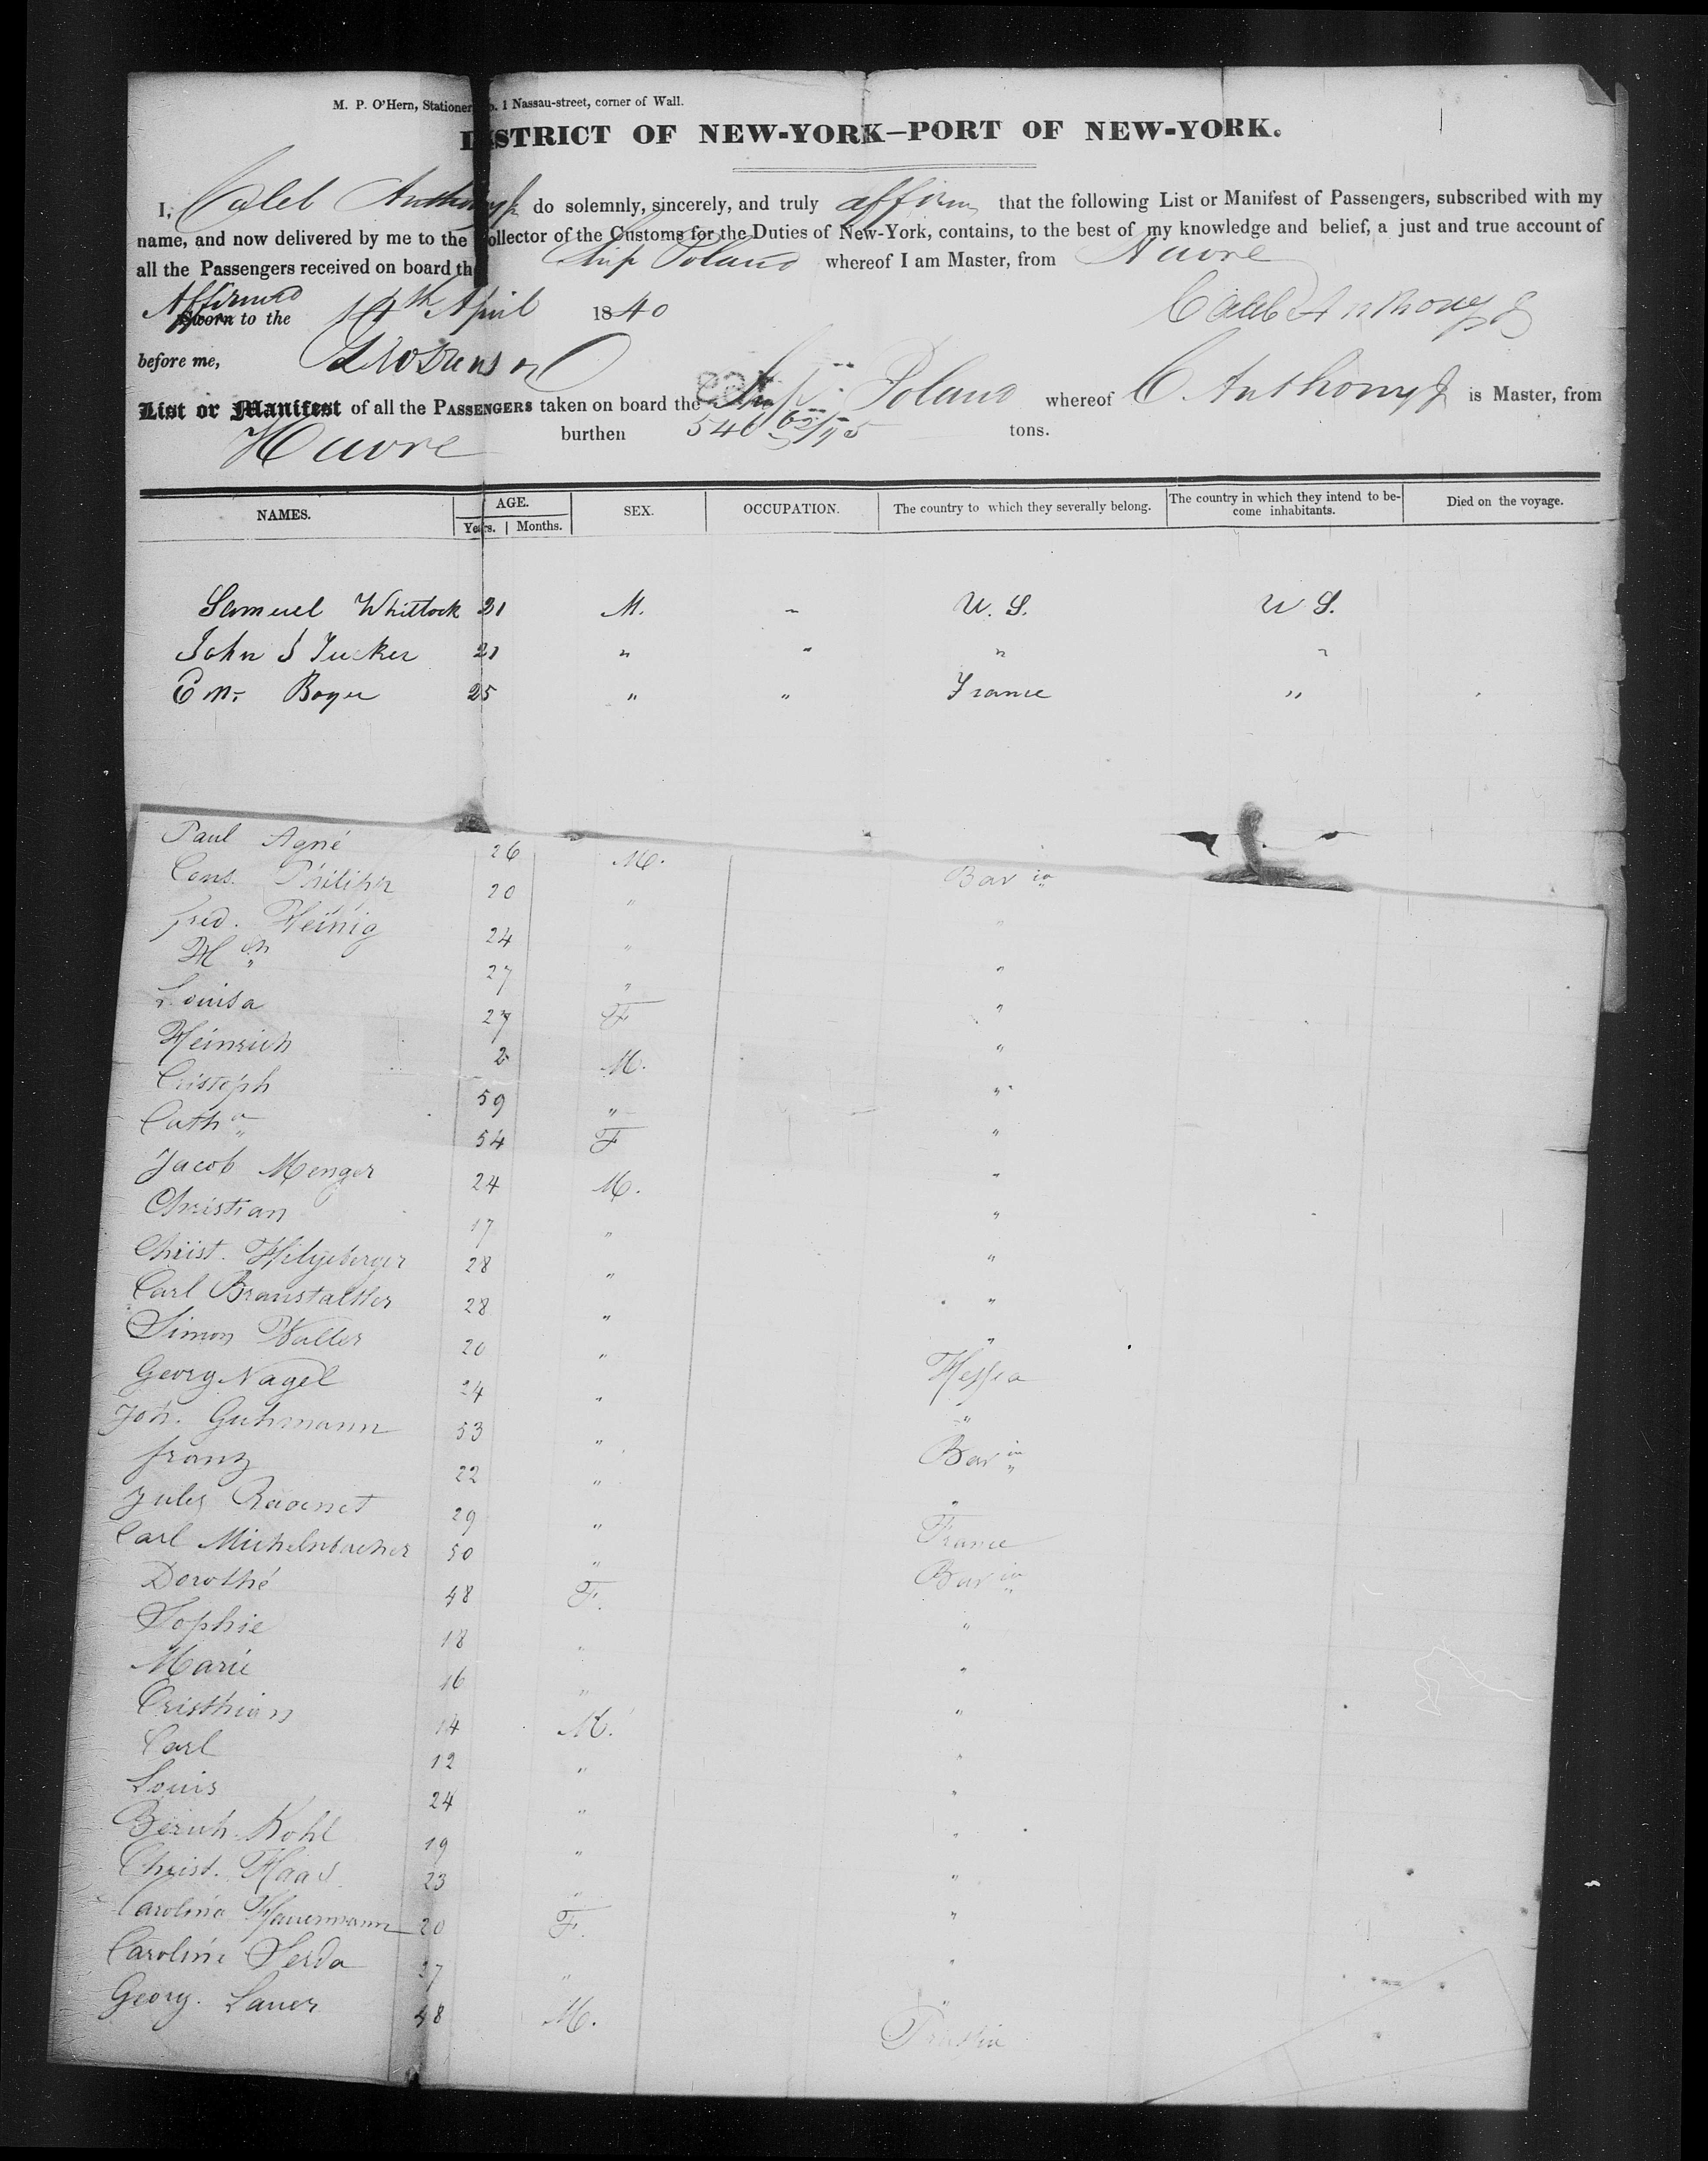 M. P. O'Hern, Stationer, No. 1 Nassau-street, corner of Wall.
DISTRICT OF NEW-YORK—PORT OF NEW-YORK.
I, Caleb Anthony Jr do solemnly, sincerely, and truly affirm that the following List or Manifest of Passengers, subscribed with my
name, and now delivered by me to the Collector of the Customs for the Duties of New-York, contains, to the best of my knowledge and belief, a just and true account of
all the Passengers received on board the Ship Poland whereof I am Master, from Havre
Affirmed
Sworn to the 14th April 1840 Caleb Anthony Jr
before me,
List or Manifest of all the PASSENGERS taken on board the Ship Poland whereof C Anthony Jr is Master, from
Havre burthen 546 tons.
NAMES. AGE. SEX. OCCUPATION. The country to which they severally belong. The country in which they intend to become inhabitants. Died on the voyage.
Years. Months.
Samuel Whitlock 31 M. " U. S. U S.
John S Tucker 21 " " " "
Em. Boyer 25 " " France "
Paul Agné 26 M. Bar ia
Cons. Philipp 20 " "
fred. Heinig 24 " "
H ch 27 " "
Louisa 27 F "
Heinrich 2 M. "
Cristoph 59 " "
Cath a 54 F "
Jacob Menger 24 M. "
Christian 17 " "
Christ. Hilgeberger 28 " "
Carl Branstatter 28 " "
Simon Walter 20 " Hessia
Georg Nagel 24 " "
Joh. Guhmann 53 " Bar ia
franz 22 " "
Jules 29 " France
Carl Michelnbacher 50 " Bar ia
Dorothé 48 F. "
Sophie 18 " "
Marie 16 " "
Cristhian 14 M. "
Carl 12 " "
Louis 24 " "
Kohl 19 " "
Christ. Haas 23 " "
Carolina Hauermann 20 F. "
Caroline Serda 27 " "
Georg. Lauer 48 M. Prussia